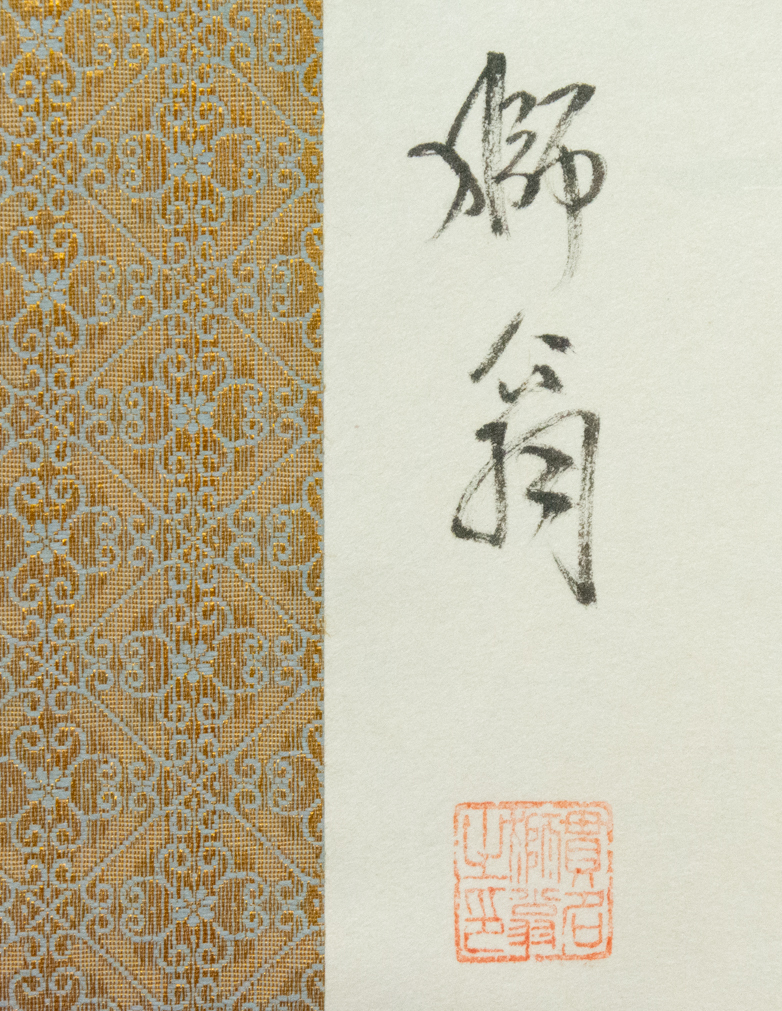 獅翁
貫名
獅翁
之印